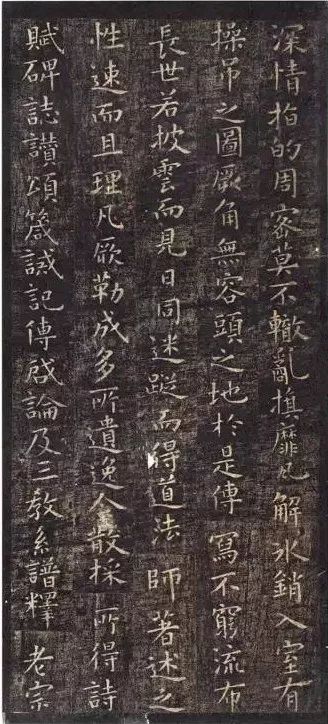 深情指的周密莫不轍亂旗靡瓦解氷銷入室有
操吊之圖厥角無容頭之地於是傳寫不窮流布
長世若披雲而見日同迷蹤而得道法師著述之
性速而且理凡厥勒成多所遺逸今散採所得詩
賦碑誌讃頌箴誡記傳啟論及三教系譜釋老宗